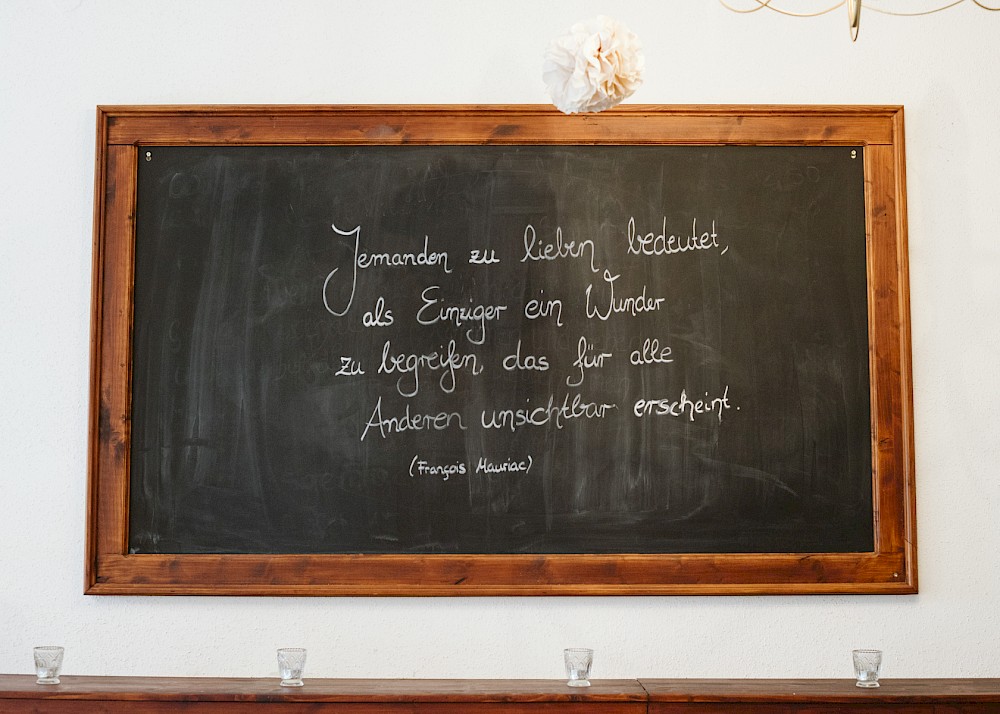 Jemanden zu lieben bedeutet,
als Einziger ein Wunder
zu begreifen, das für alle
Anderen unsichtbar erscheint.
(François Mauriac)